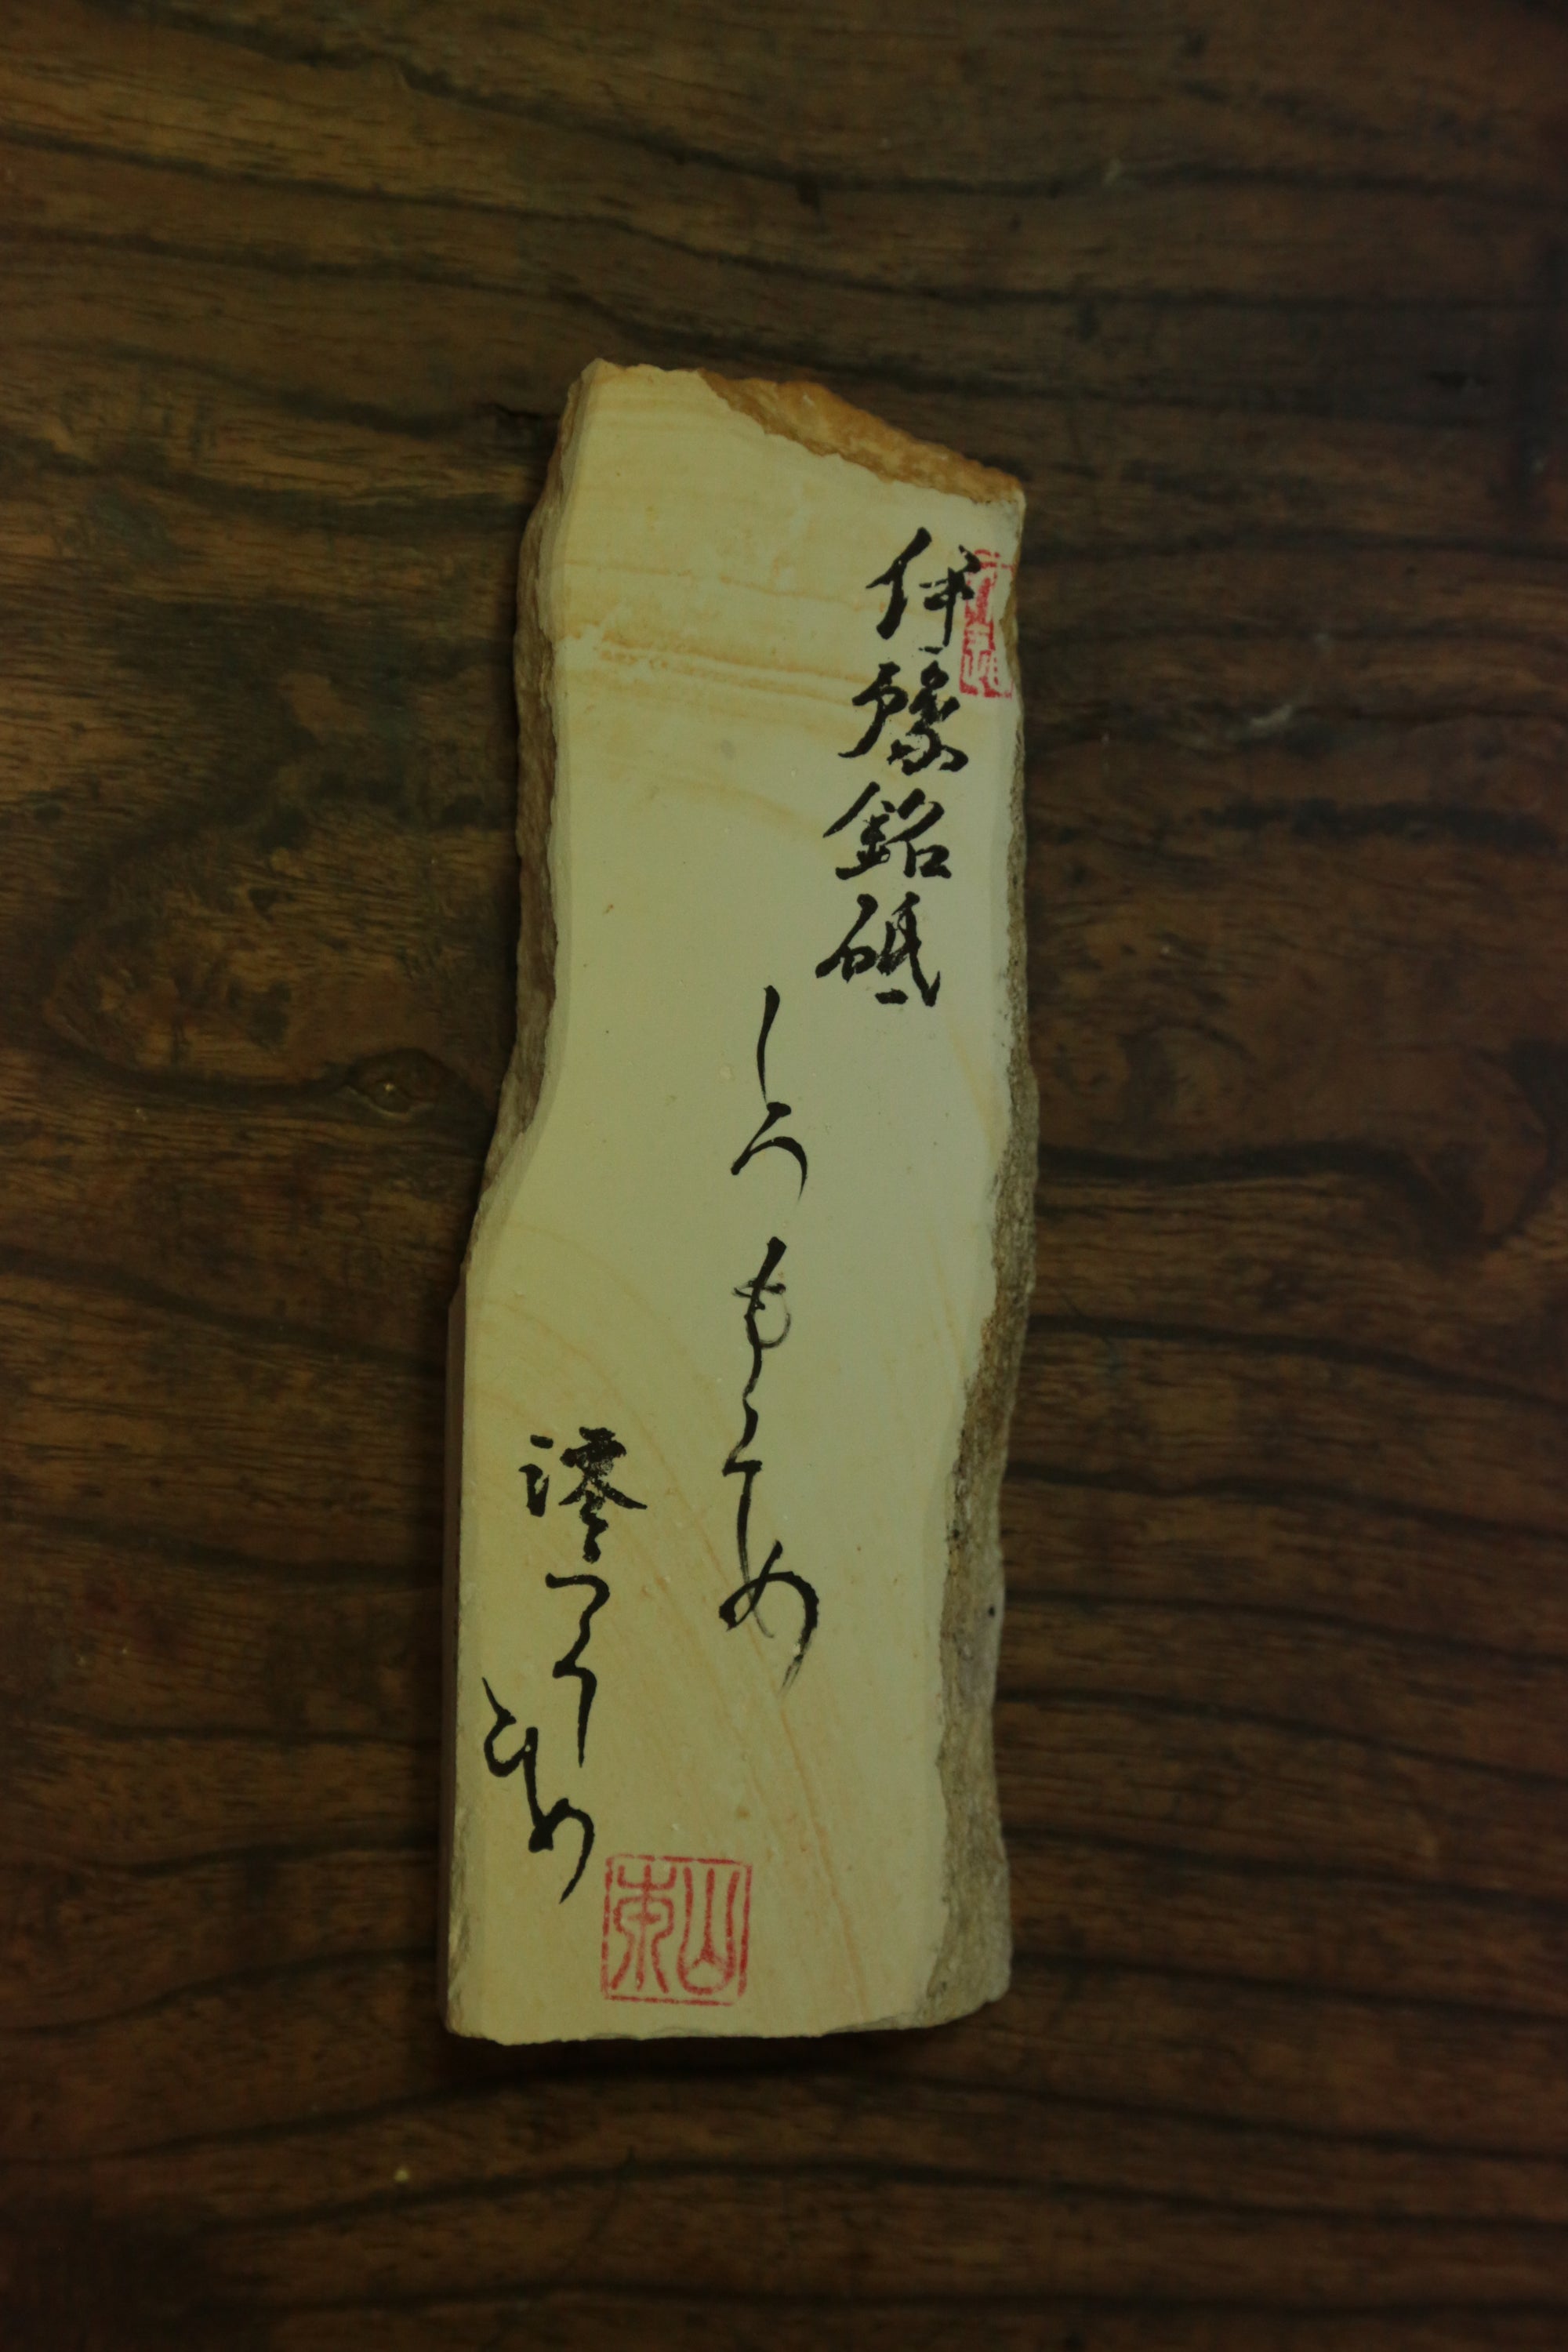 伊豫銘砥
しろもくめ
澪つくしひめ
山東